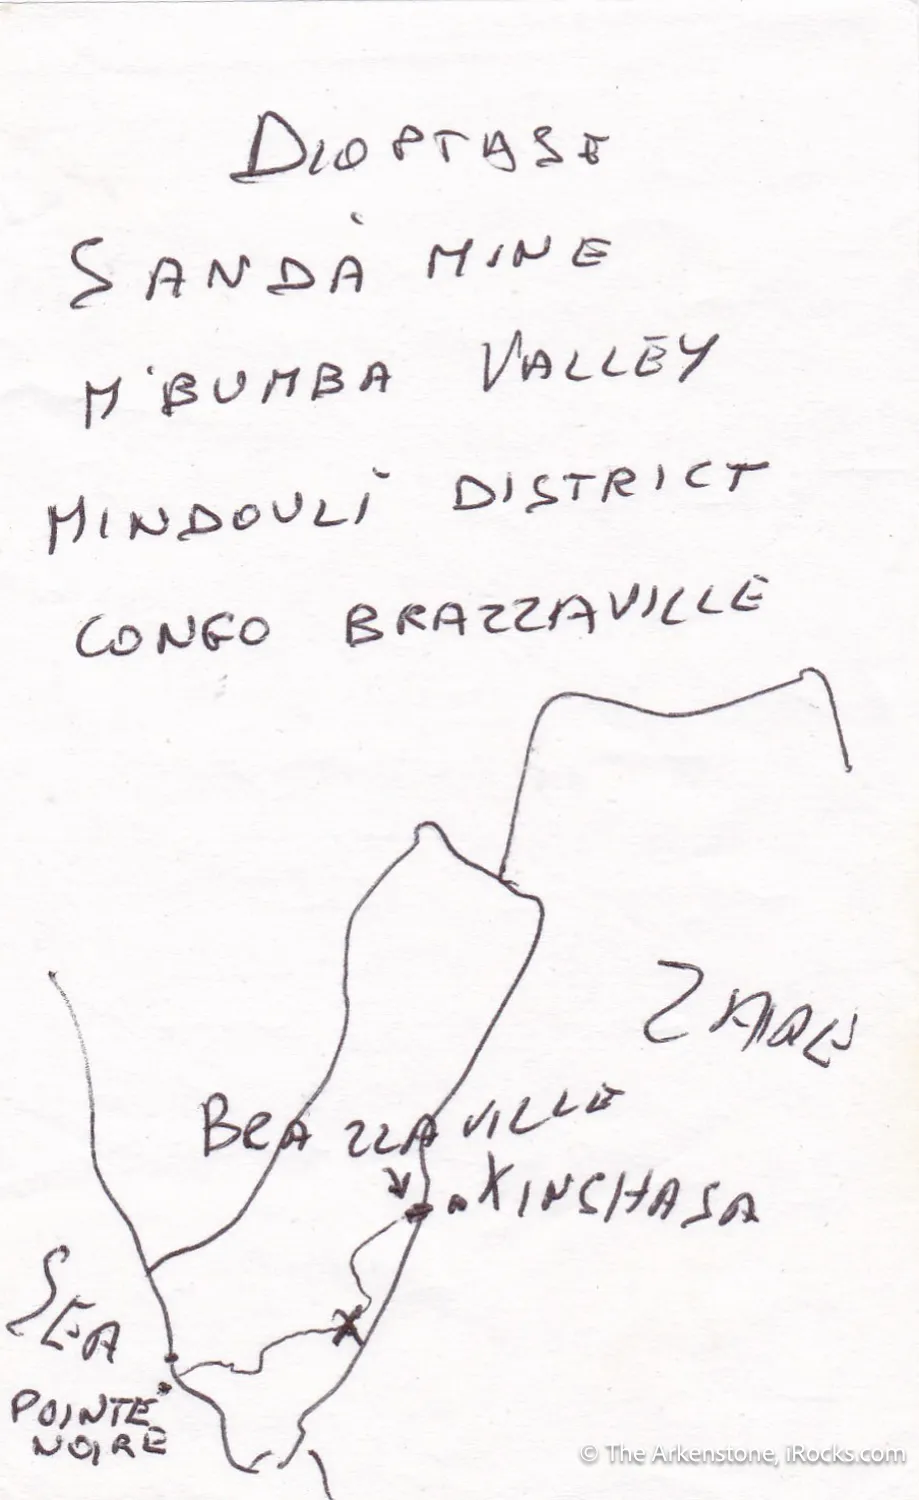 DIOPTASE
SANDÀ MINE
M'BUMBA VALLEY
MINDOULI DISTRICT
CONGO BRAZZAVILLE
ZAIRE
BRAZZAVILLE
KINSHASA
SEA
POINTE
NOIRE
© The Arkenstone, iRocks.com